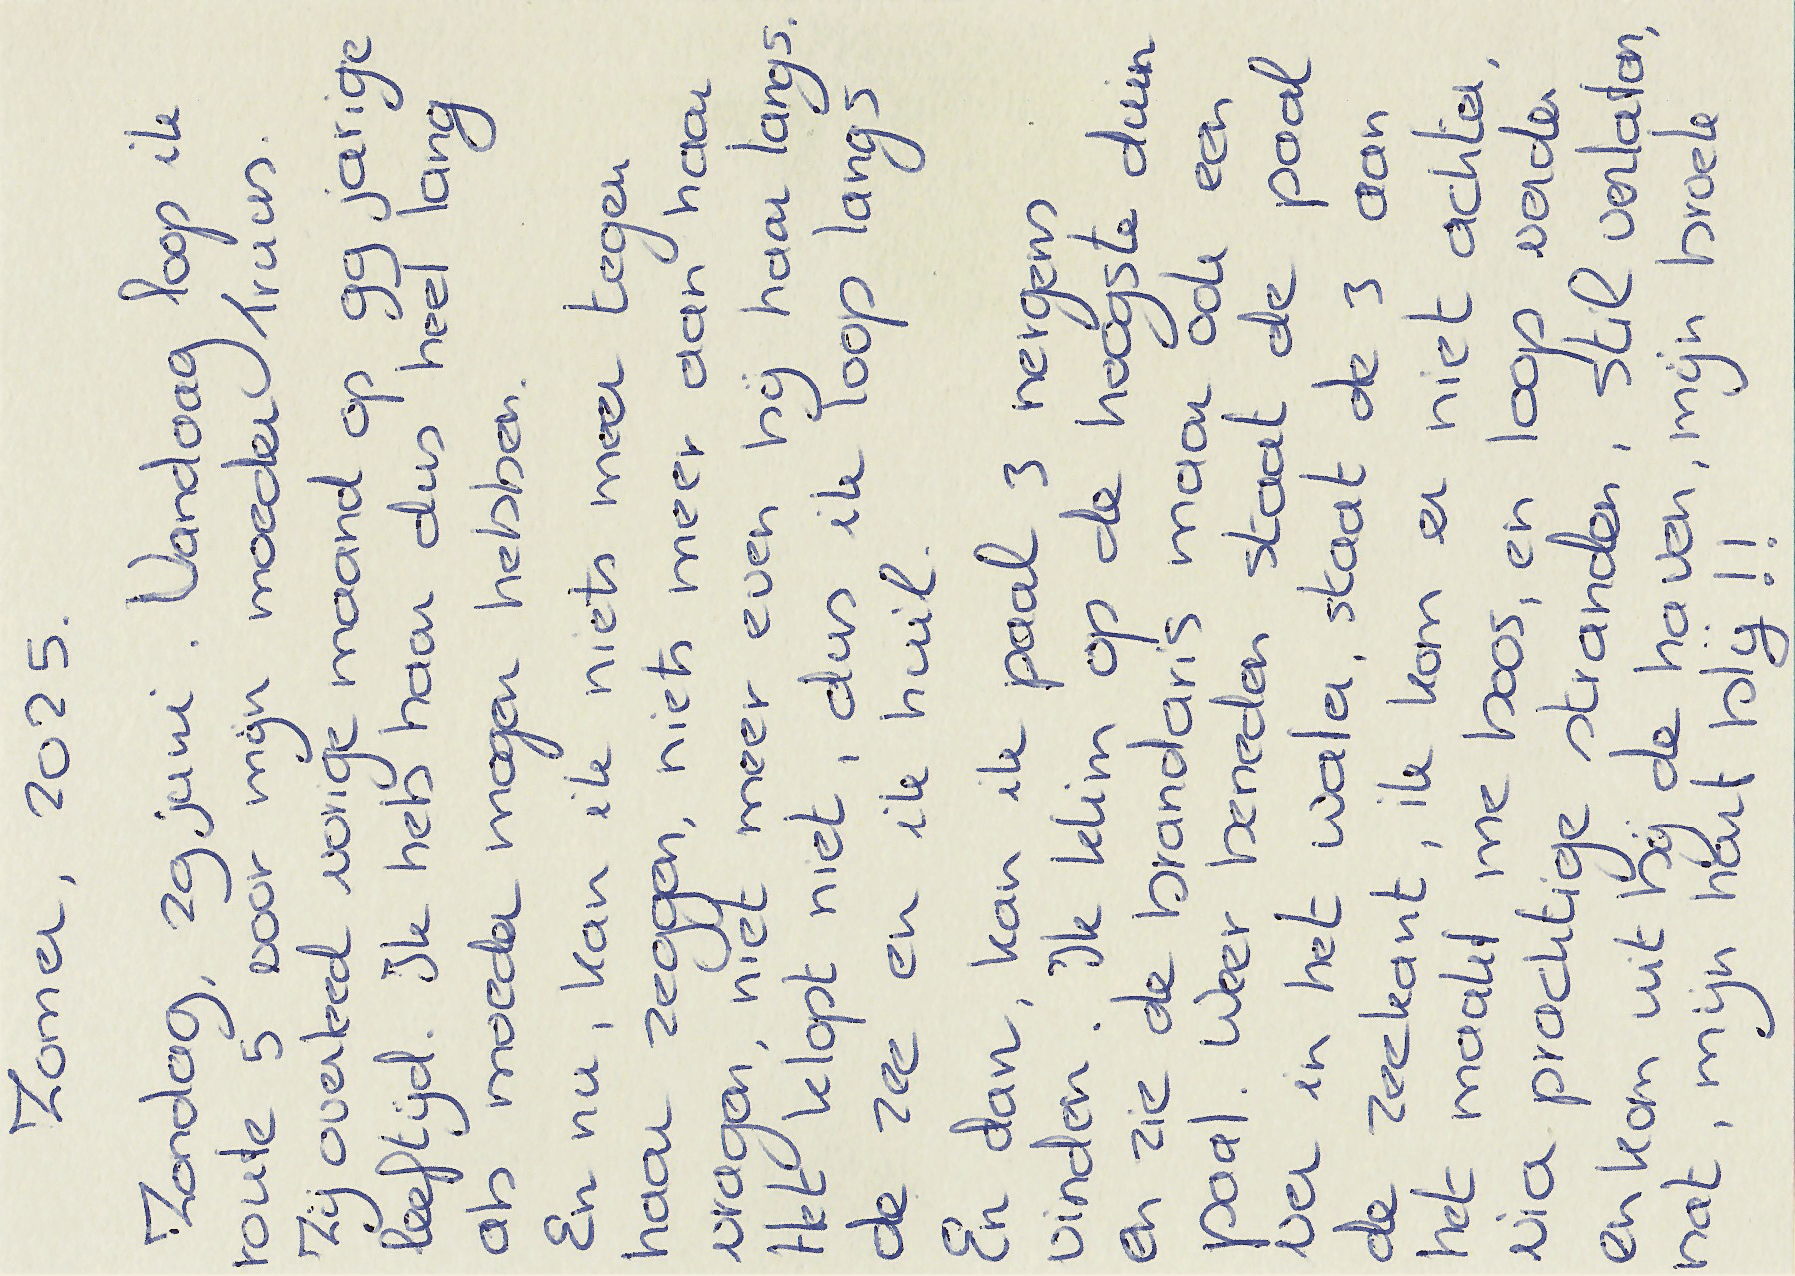 Zomer, 2025.
Zondag, 29 juni. Vandaag loop ik
route 5 voor mijn moeder Truus.
Zij overleed vorige maand op 99 jarige
leeftijd. Ik heb haar dus heel lang
als moeder mogen hebben.
En nu, kan ik niets meer tegen
haar zeggen, niets meer aan haar
vragen, niet meer even bij haar langs.
Het klopt niet, dus ik loop langs
de zee en ik huil.
En dan, kan ik paal 3 nergens
vinden. Ik klim op de hoogste duin
en zie de brandaris maar ook een
paal. Weer beneden staat de paal
ver in het water, staat de 3 aan
de zeekant, ik kom er niet achter,
het maakt me boos, en loop verder
via prachtige stranden, stil verlaten,
en kom uit bij de haven, mijn broek
nat, mijn hart blij!!